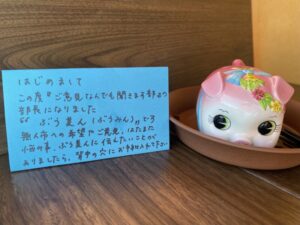 はじめまして
この度“ご意見なんでも聞きます部”の
部長になりました
“ぶう美ん（ぶうみん）”です
無人市への希望やご意見、はたまた
ぶう美んに伝えたいことが
ありましたら、背中の穴にお手紙入れて下さい